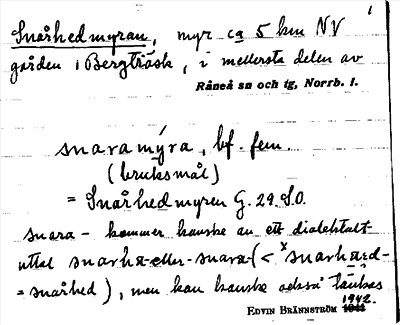 1
Snårhedmyran, myr ca 5 km NV
gården i Bergträsk, i mellersta delen av
Råneå sn och tg, Norrb. l.
snaramýra, bf. fem.
(bruksmål)
= Snårhedmyren G. 29. S.O.
snara- kommer kanske av ett dialektalt
uttal snarha- eller -snara- (< ˣsnarhæd-
= snårhed), men kan kanske också tänkas
EDVIN BRÄNNSTRÖM 1942.